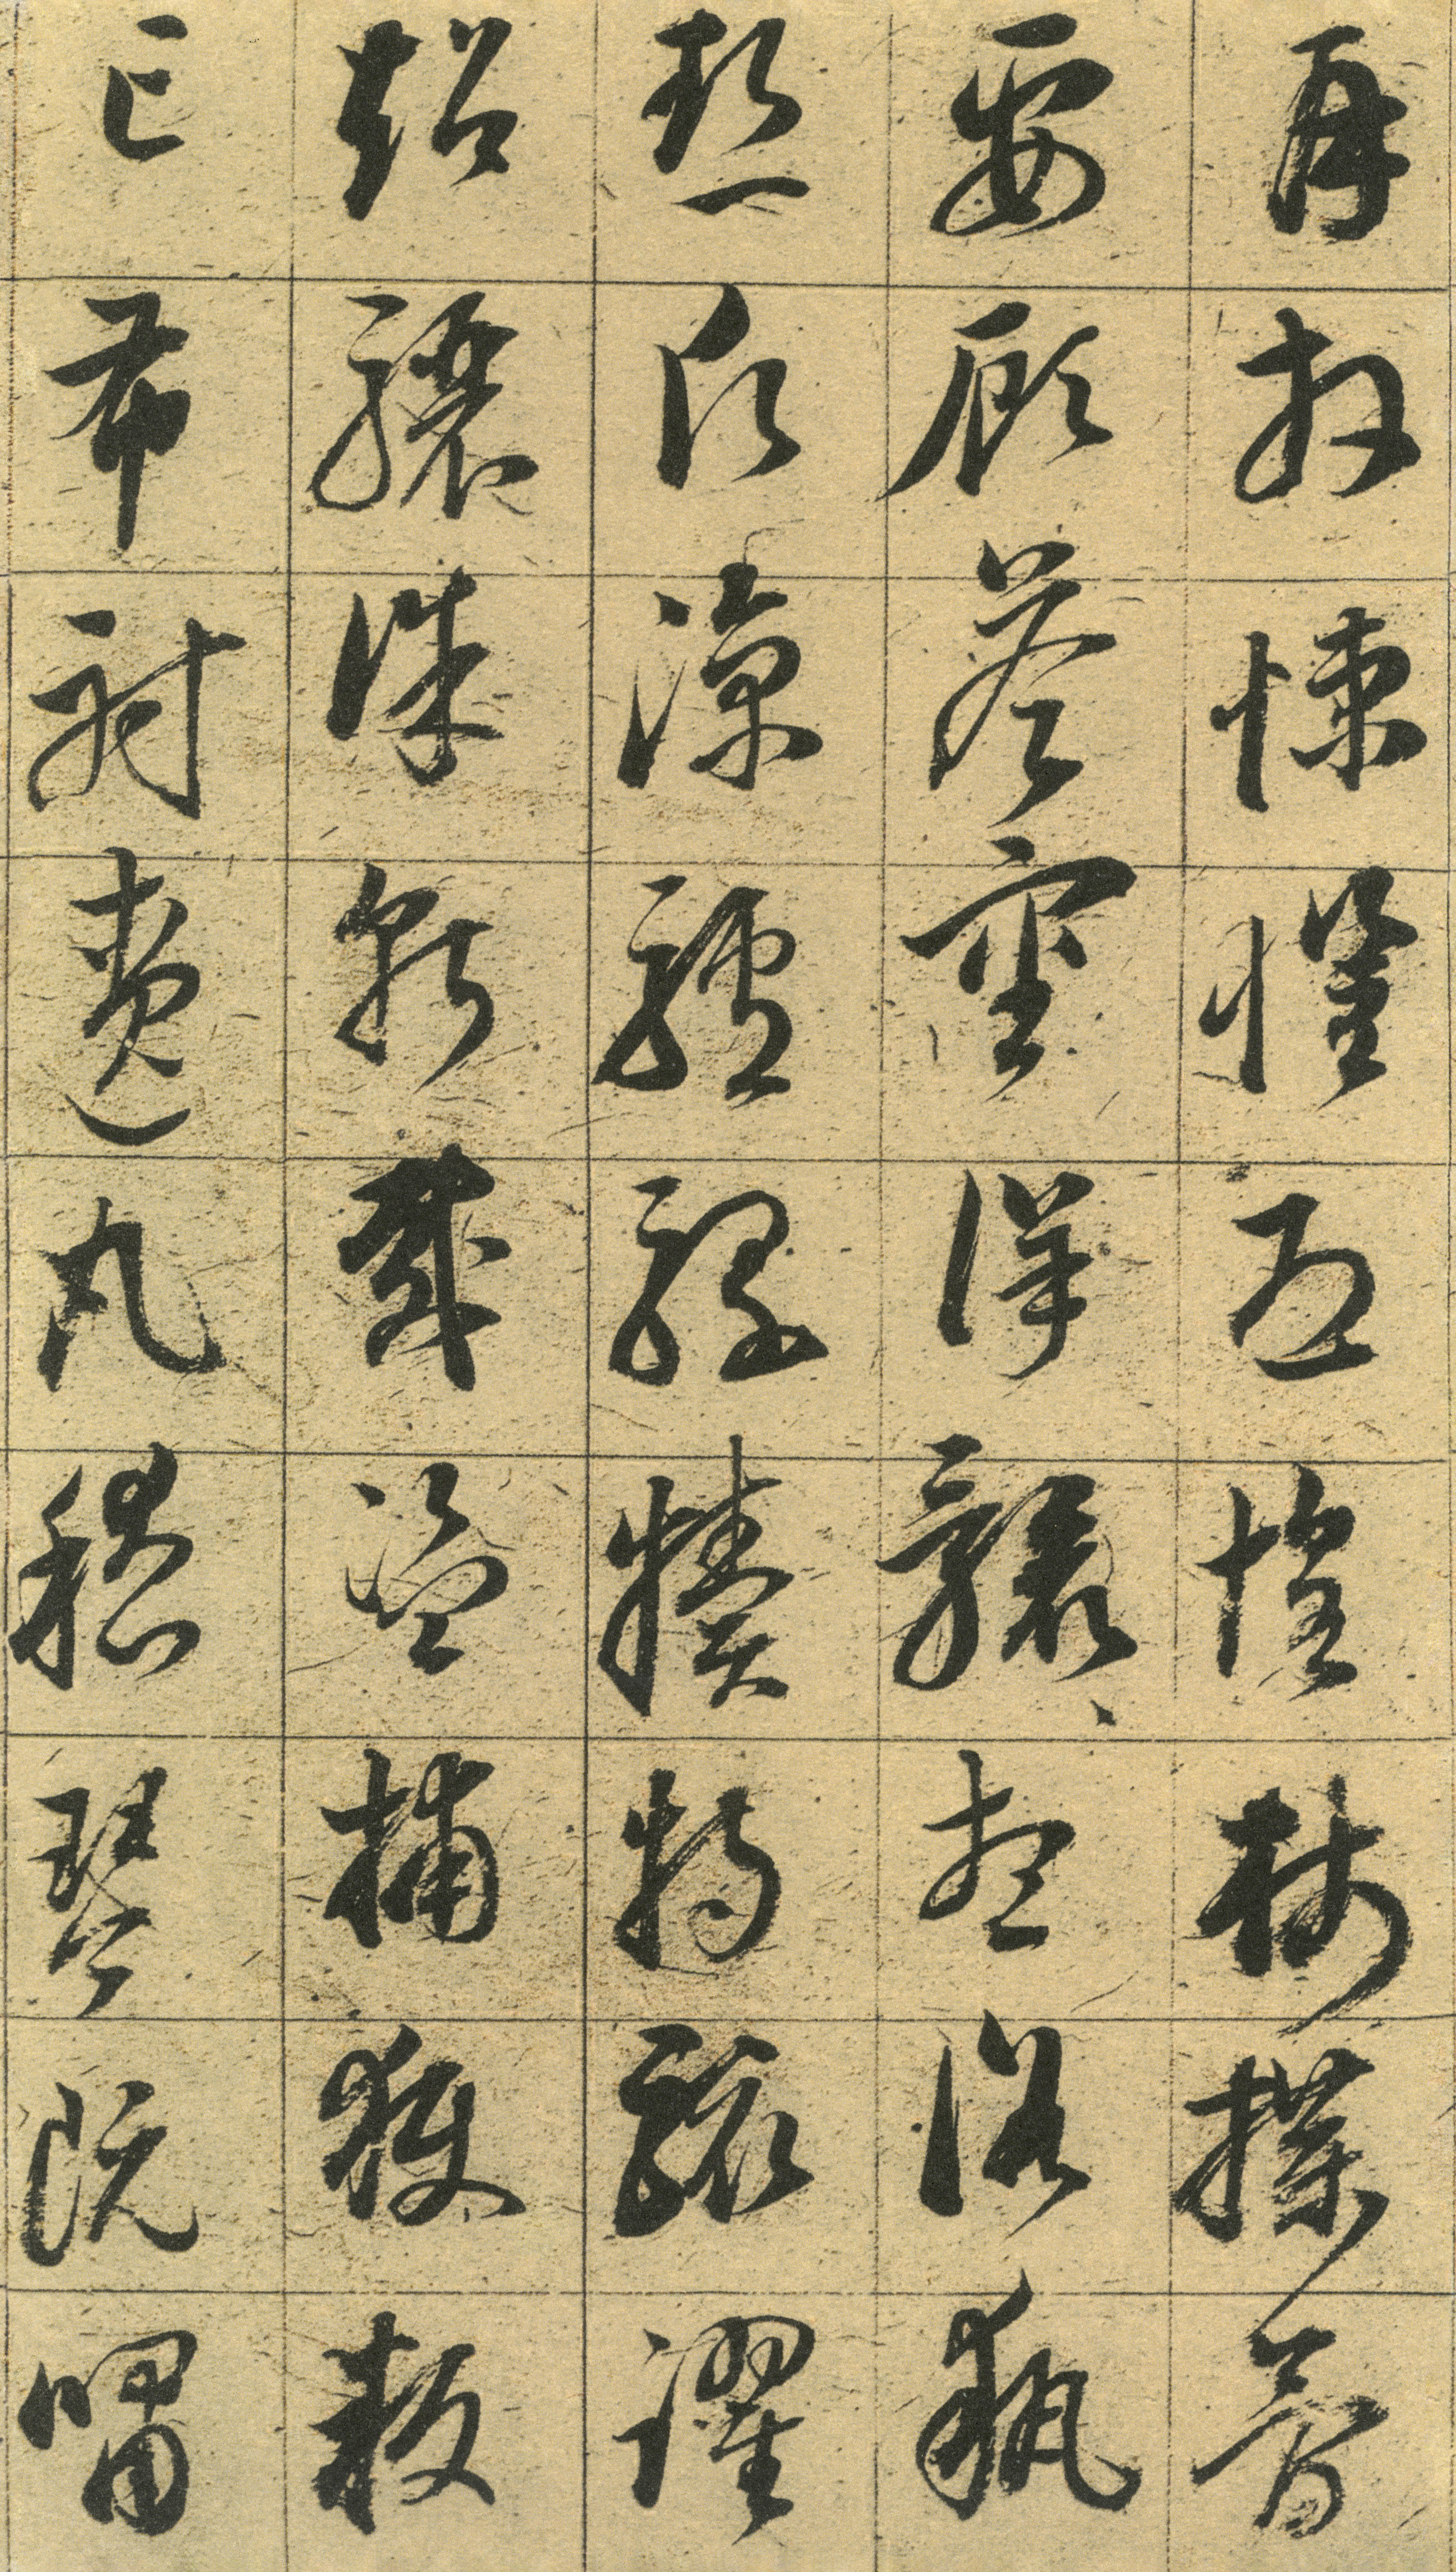 再拜悚懼恐惶牋牒簡
要顧答審詳骸想浴執
熱願涼驢騾犢特駭躍
超驤誅斬賊盜捕獲叛
亡布射遼丸嵇琴阮嘯